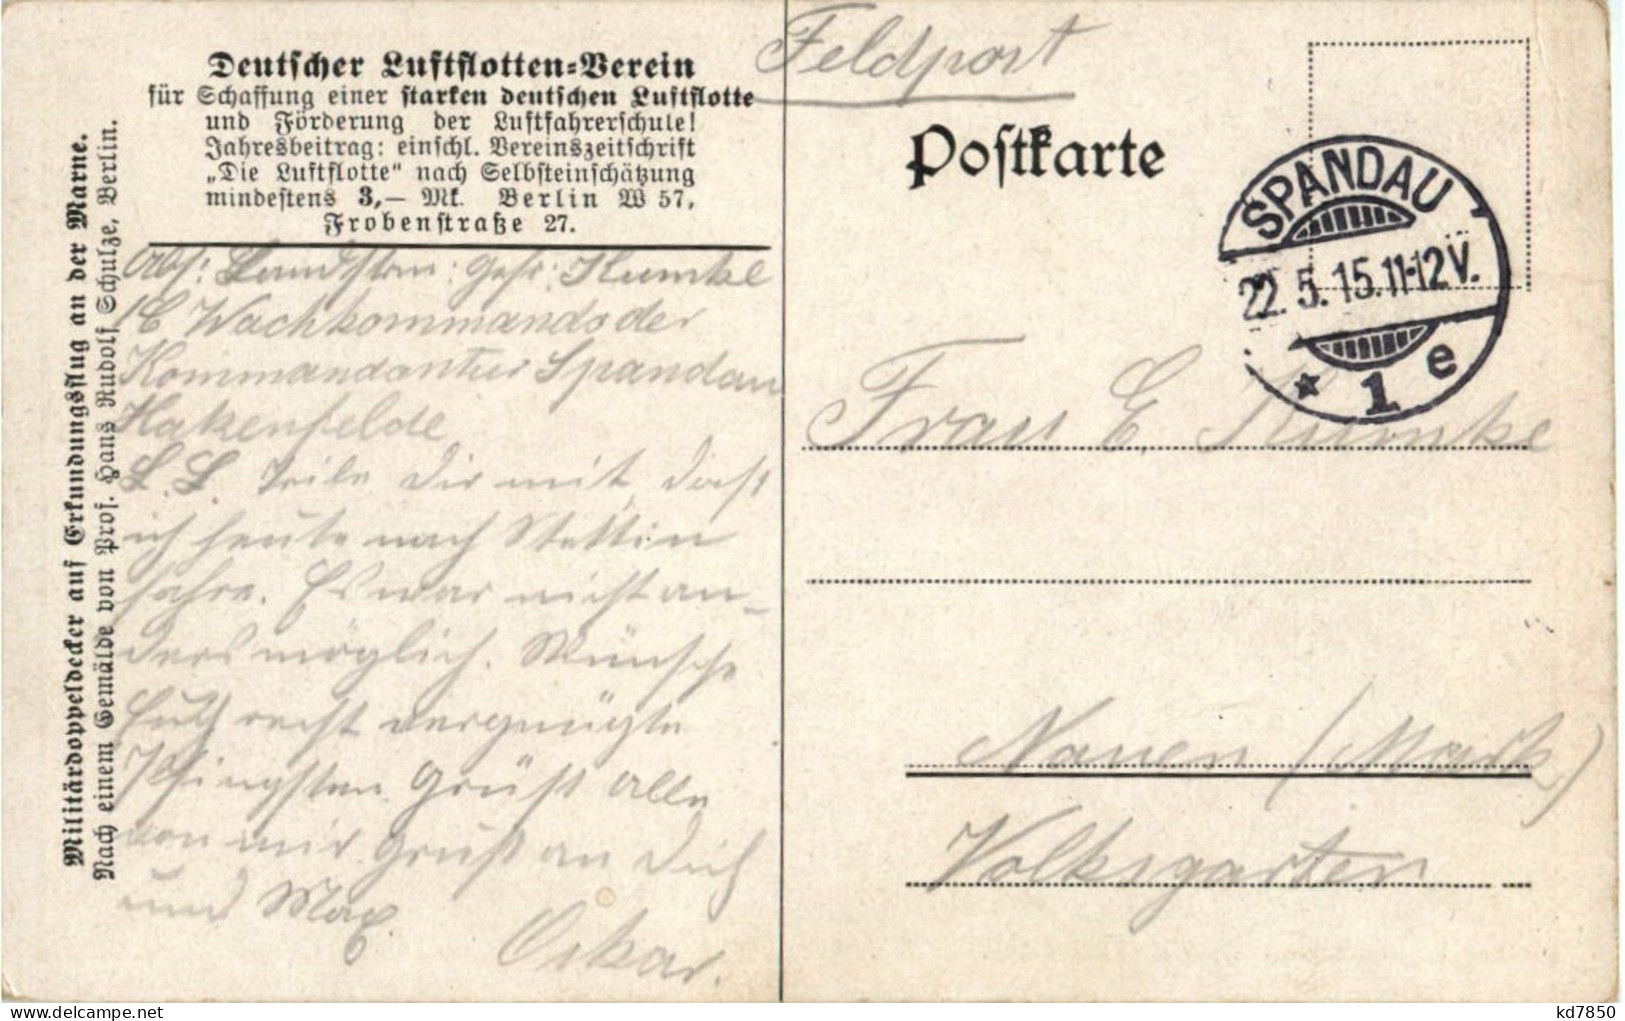 Deutscher Luftflotten-Verein
für Schaffung einer starken deutschen Luftflotte
und Förderung der Luftfahrerschule!
Jahresbeitrag: einschl. Vereinszeitschrift
„Die Luftflotte“ nach Selbsteinschätzung
mindestens 3,— Mk. Berlin W 57,
Frobenstraße 27.
Militärdoppeldecker auf Erkundungsflug an der Marne.
Nach einem Gemälde von Prof. Hans Rudolf Schulze, Berlin.
Abs: Landstrm: Gefr: Kumke
Wachkommando der
Kommandantur Spandau
Hakenfelde
L. L. Teile Dir mit, dass
ich heute nach Stettin
fahre. Es war nicht an-
ders möglich. Wünsche
Euch recht vergnügte
Pfingsten Grüß alle
von mir Gruß an Dich
und Max.
Oskar.
Feldpost
Postkarte
SPANDAU
22.5.15.11-12V.
* 1 e
Frau E. Kumke
Nauen (Mark)
Volksgarten
kd7850